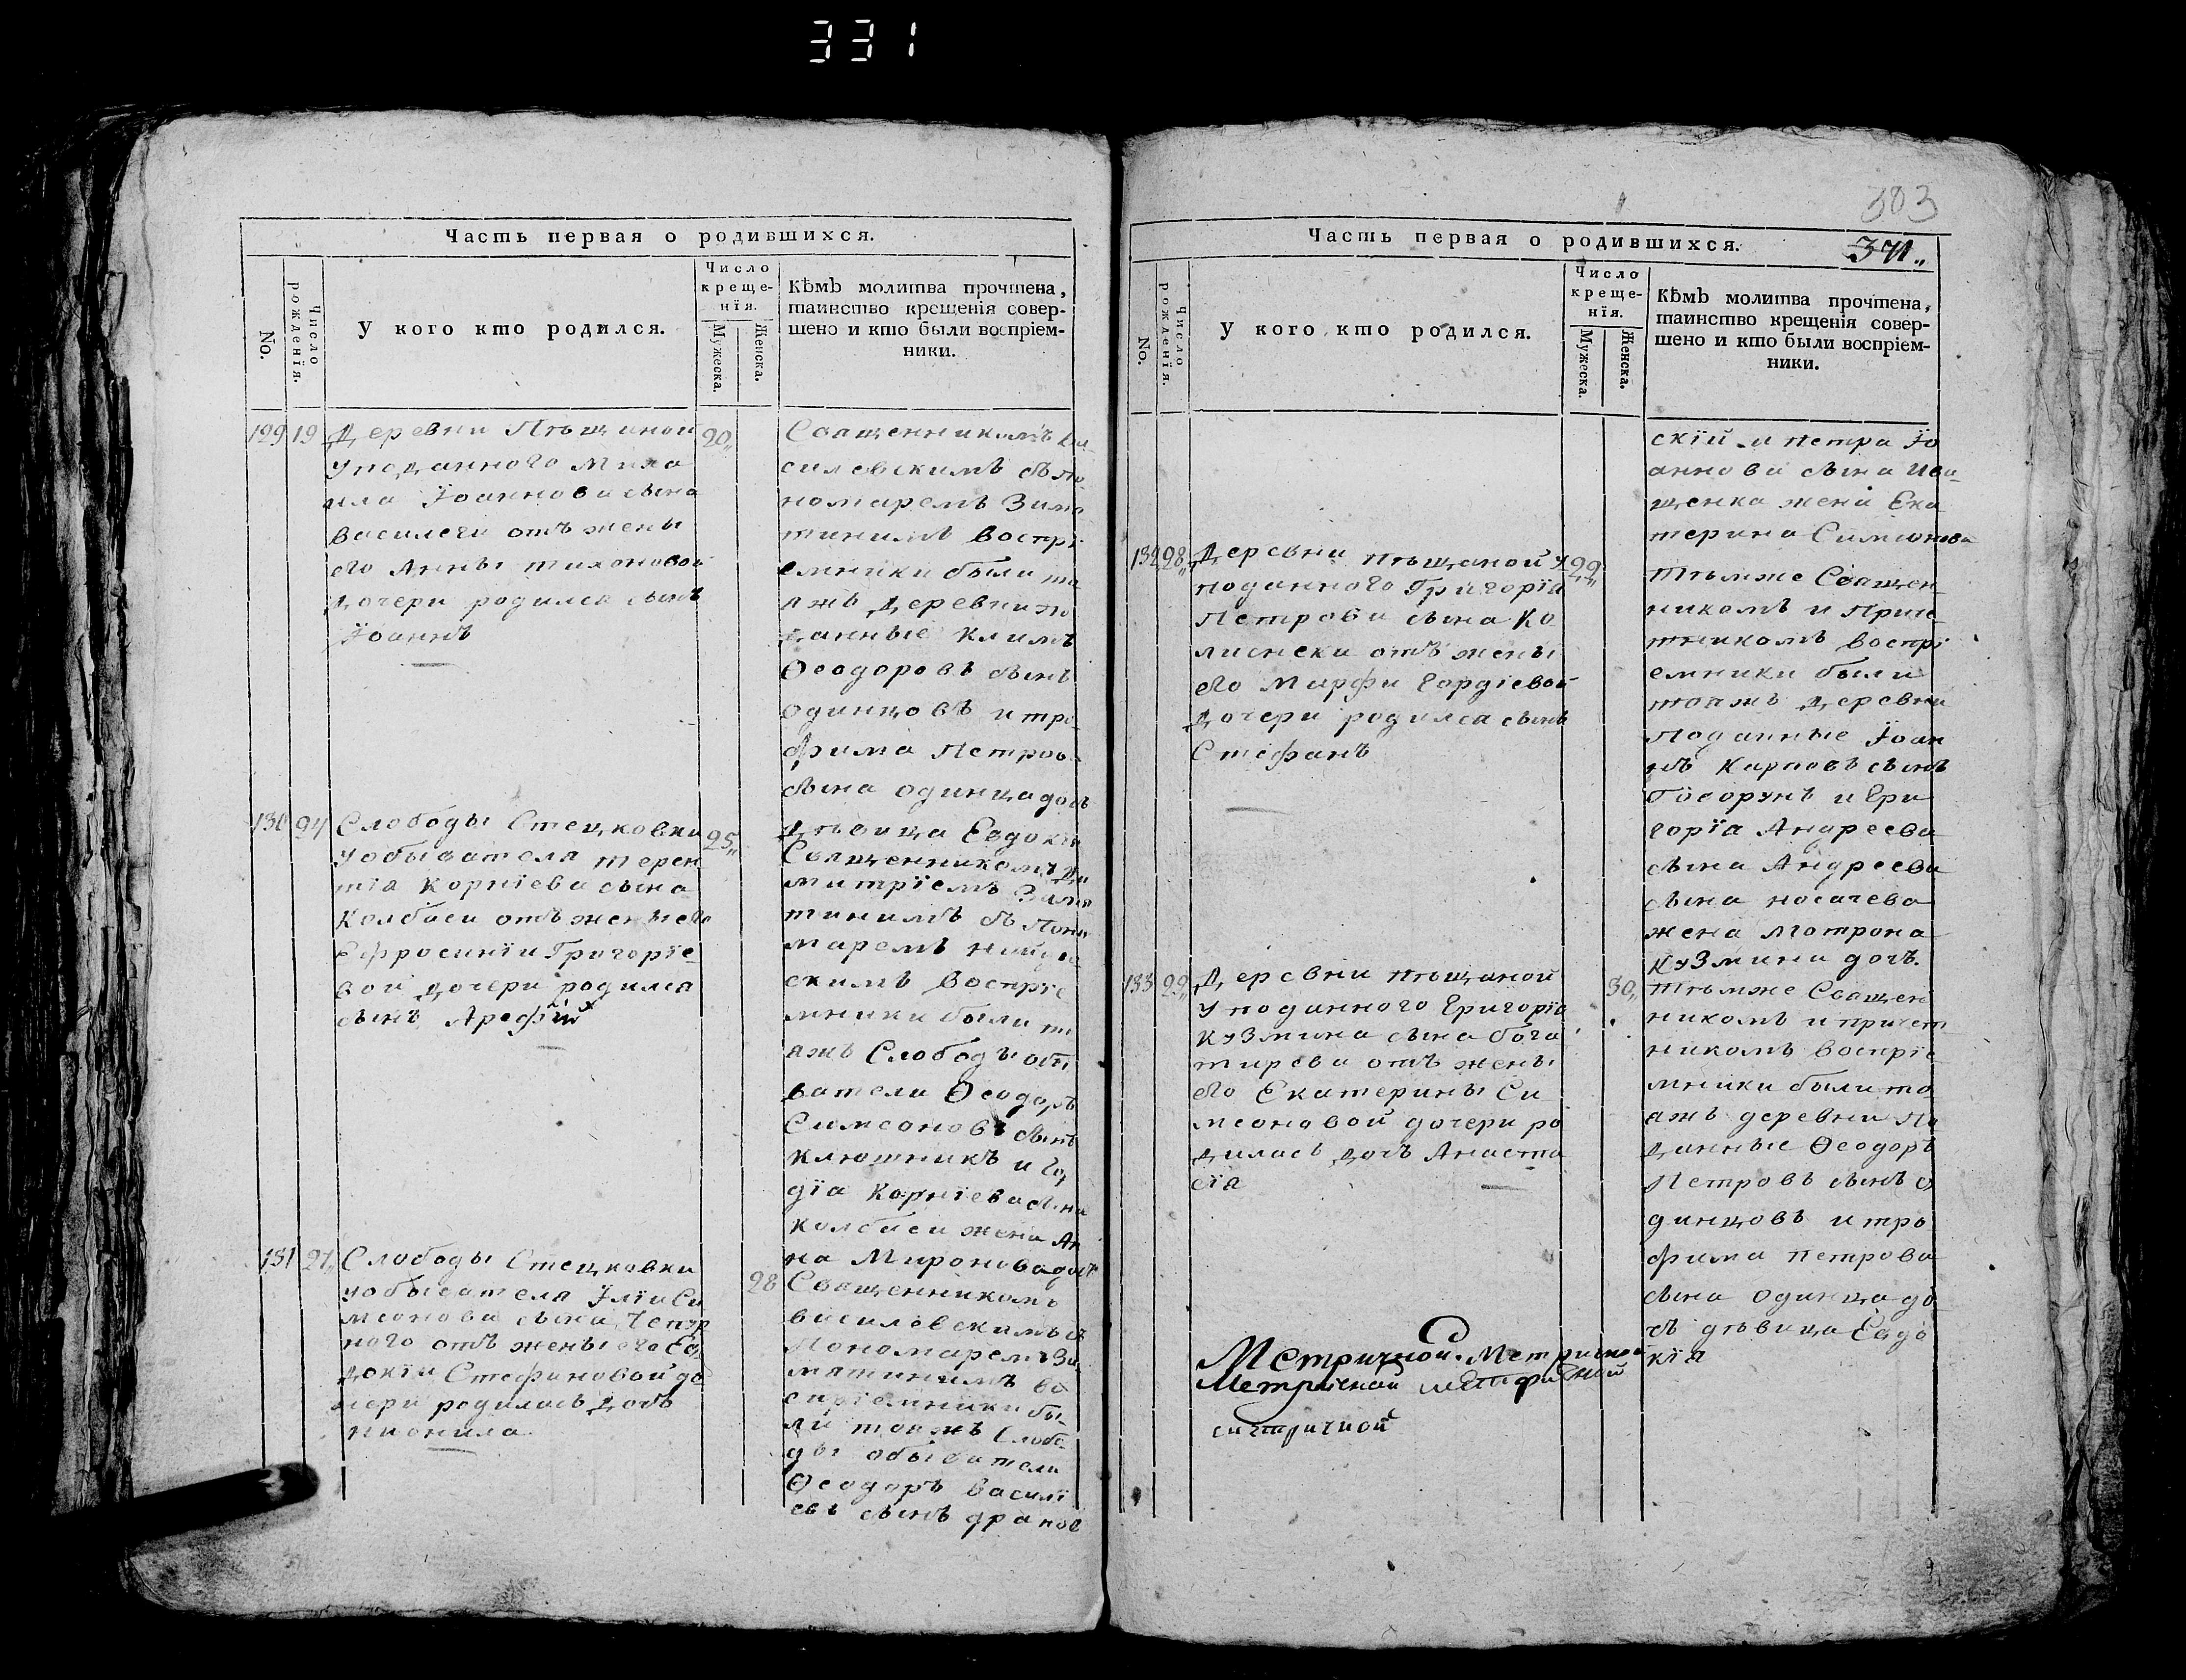 331
Часть первая о родившихся.
No.
Число рожденїя.
У кого кто родился.
Число крещенїя.
Мужеска.
Женска.
Кѣмъ молитва прочтена,
таинство крещенїя совер-
шено и кто были воспрїем-
ники.
129 19
Деревни Пѣщаной
у поданного Миха
ила Іоаннова сына
отъ жены
его Анны Тихоновой
дочери родился сынъ
Іоаннъ
20
Священникомъ Ва
силевскимъ съ по
номаремъ Зимо
тинимъ воспрі
емники были то
яжъ деревни по
данные Климъ
Ѳеодоровъ сынъ
Одинцовъ и Тро
фима Петров
сына Одинца дочь
дѣвица Евдокія
130 24
Слободы Стецковки
у обывателя Терен
тїа Корнїева сына
Колбаси отъ жены его
Ефросинїи Григорїе
вой дочери родился
сынъ Арефїй
25
Священникомъ Ди
митрїемъ
тинимъ съ Поно
маремъ
скимъ воспрїе
мники были то
яжъ Слободы обы
ватели Ѳеодоръ
Симеоновъ сынъ
Клюшникъ и
дїа Корнїева сына
Колбаси жена Ан
на Миронова дочь
131 27
Слободы Стецковки
у обывателя Іліи Си
меонова сына Чепур
ного отъ жены его Ев
докїи Стефановой до
чери родилась дочь
Нионила
28
Священникомъ
Василевскимъ съ
Пономаремъ Зи
мотинимъ во
спрїемники бы
ли тояжъ Слобо
ды обыватели
Ѳеодоръ Василї
евъ сынъ Дранов
303
341
Часть первая о родившихся.
No.
Число рожденїя.
У кого кто родился.
Число крещенїя.
Мужеска.
Женска.
Кѣмъ молитва прочтена,
таинство крещенїя совер-
шено и кто были воспрїем-
ники.
скїй и Петра Іо
аннова сына Ива
щенка жена Ека
терина Симионова
132 28
Деревни Пѣщаной у
поданного Григорїа
Петрова сына Ко
отъ жены
его Марфи Гордїевой
дочери родился сынъ
Стефанъ
29
Тѣмже Священ
никомъ и Приче
тникомъ воспрі
емники были
тояжъ деревни
Поданные Іоан
нъ Карповъ сынъ
и Гри
горїа Андреева
сына Андреева
сына Носачева
жена Мотрона
Кузмина дочь.
133 29
Деревни Пѣщаной
у поданного Григорїа
Кузмина сына Бога
тирева отъ жены
его Екатерины Си
меоновой дочери ро
дилась дочь Анаста
сїа
30
Тѣмже Священ
никомъ и причет
никомъ воспрїе
мники были то
яжъ деревни По
данные Ѳеодоръ
Петровъ сынъ О
динцовъ и Тро
фима Петрова
сына Одинца до
чъ дѣвица Евдо
кїа
Метричной. Метричной
Метричной